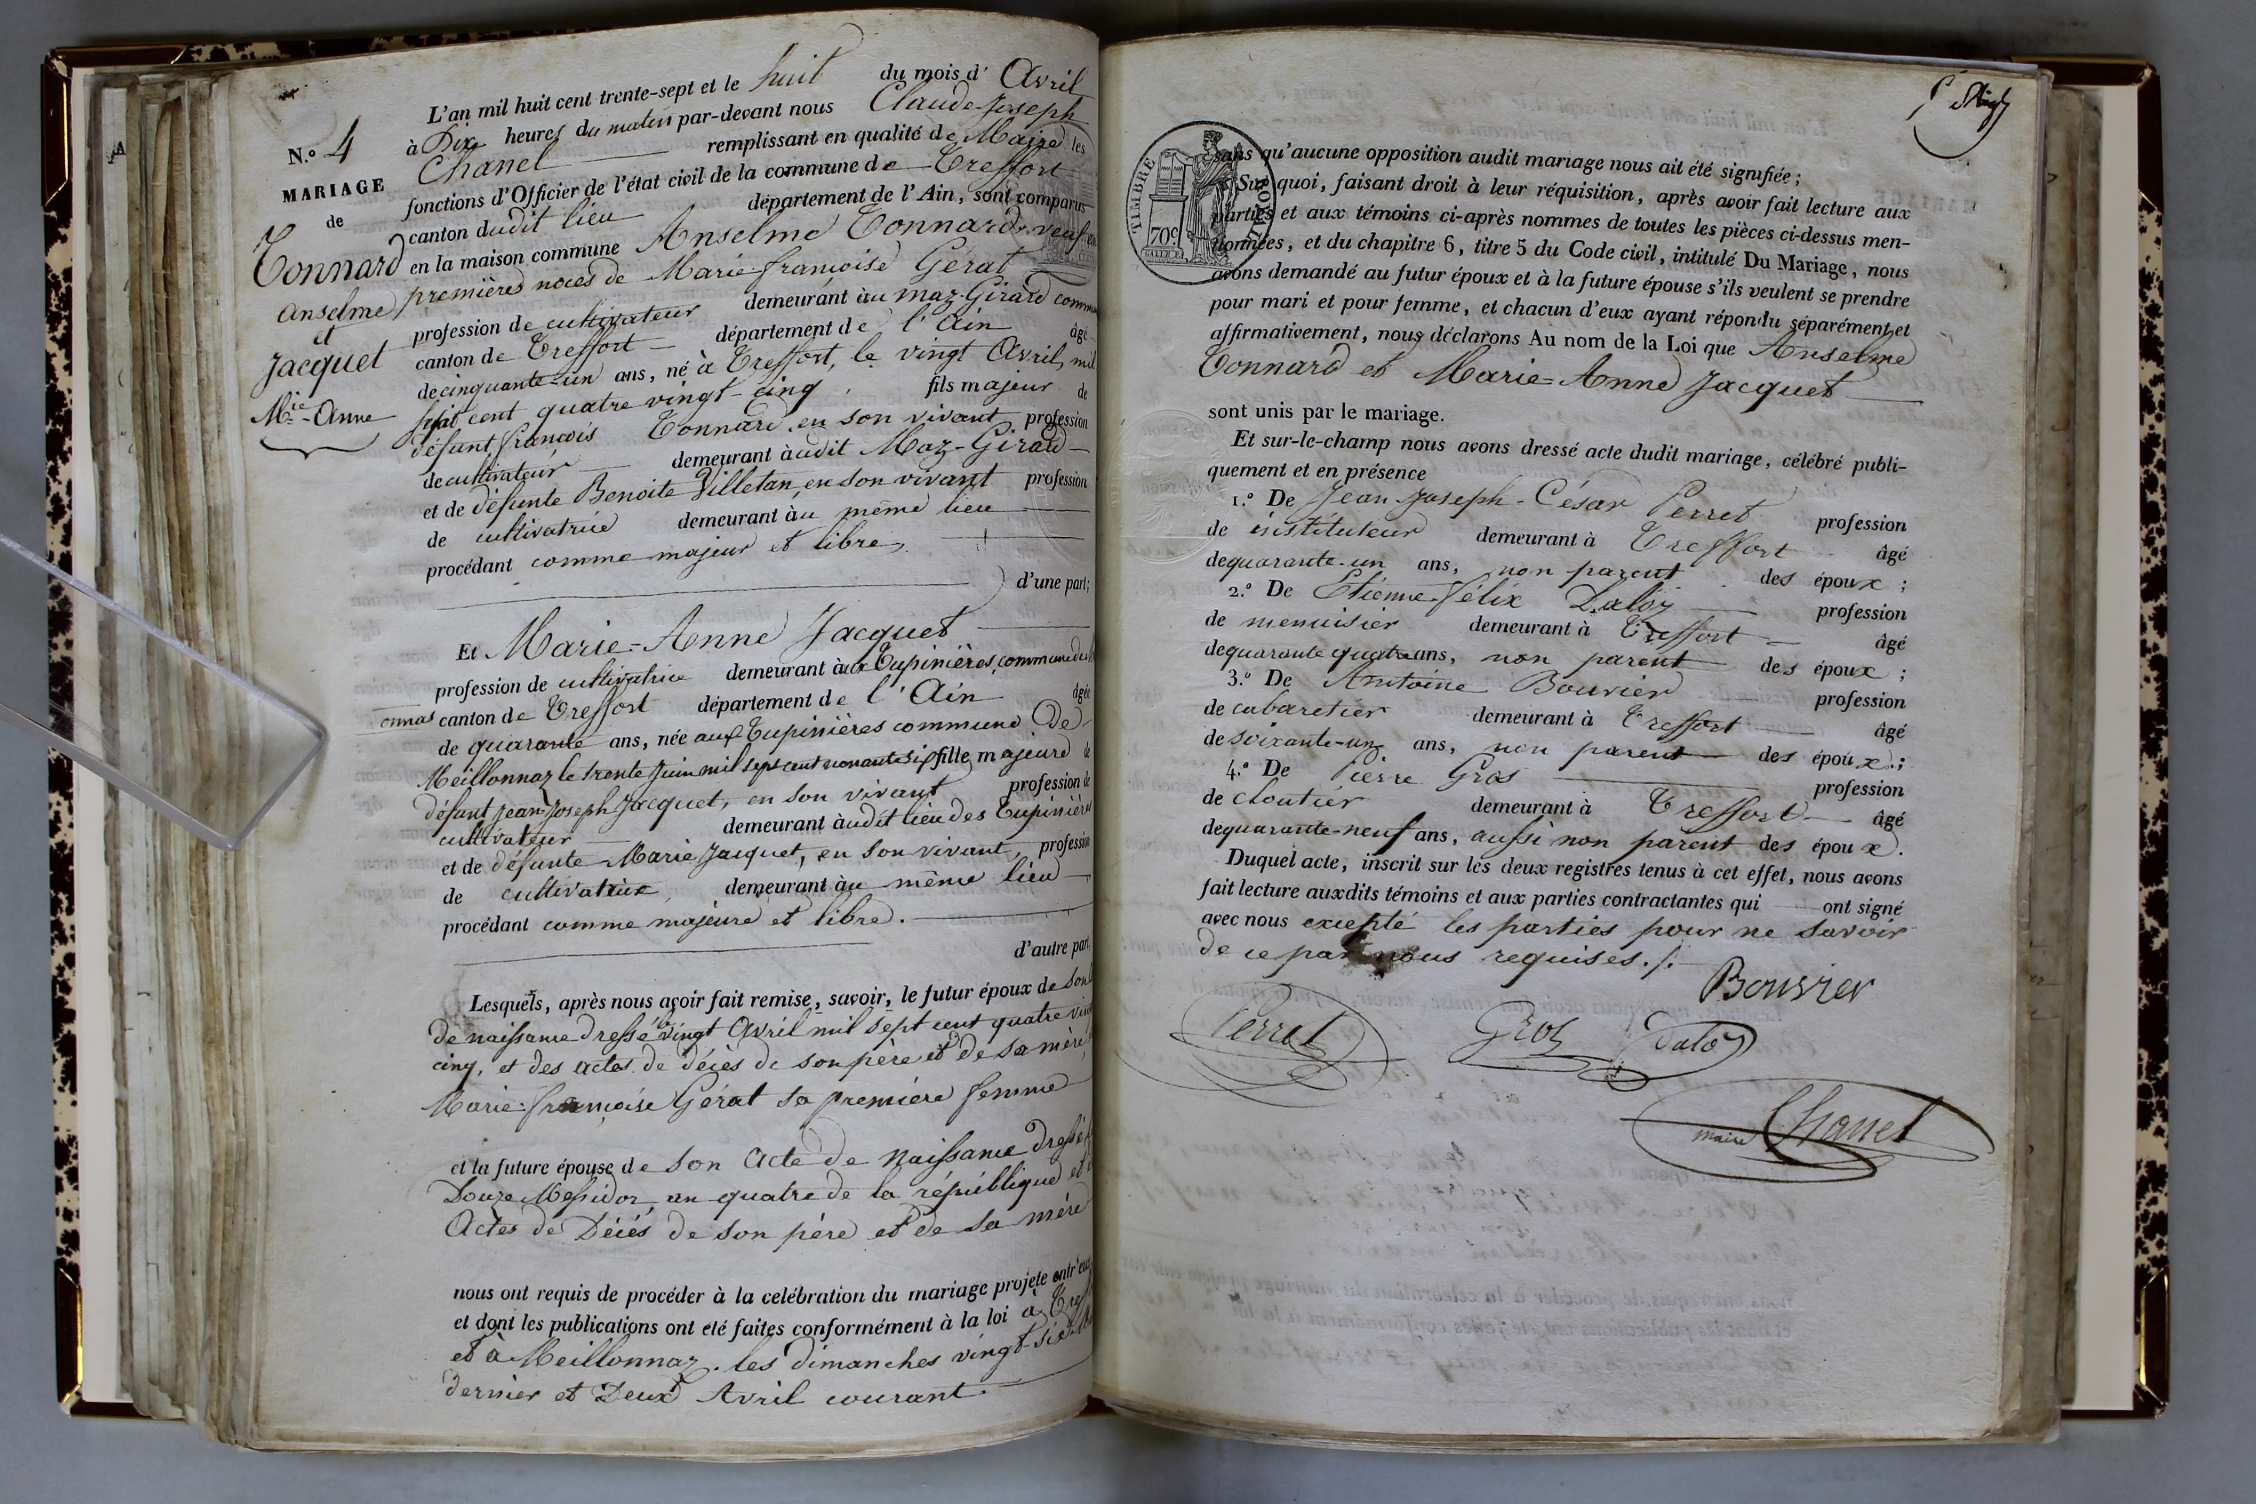 L'an mil huit cent trente-sept et le huit du mois d' Avril
à Dix heures du matin par-devant nous Claude Joseph
Chanel remplissant en qualité de Maire les
fonctions d'Officier de l'état civil de la commune de Treffort
canton dudit lieu département de l'Ain, sont comparus
en la maison commune Anselme Tonnard, veuf en
premières noces de Marie françoise Gérat
profession de cultivateur demeurant au maz-Girard
canton de Treffort département de l'Ain âgé
de cinquante-un ans, né à Treffort, le vingt Avril, mil
sept cent quatre vingt-cinq fils majeur de
défunt françois Tonnard, en son vivant profession
de cultivateur demeurant audit Maz-Girard
et de défunte Benoite Villetan, en son vivant profession
de cultivatrice demeurant au même lieu
procédant comme majeur et libre,
d'une part;
Et Marie-Anne Jacquet
profession de cultivatrice demeurant aux Tupinières, commune de
canton de Treffort département de l'Ain âgée
de quarante ans, née aux Tupinières commune De
Meillonnaz le trente Juin mil sept cent nonante six fille majeure de
défunt Jean-Joseph Jacquet, en son vivant profession de
cultivateur demeurant audit lieu des Tupinières
et de défunte Marie Jacquet, en son vivant, profession
de cultivatrice demeurant au même lieu
procédant comme majeure et libre.
d'autre part.
Lesquels, après nous avoir fait remise, savoir, le futur époux de son
de naissance dressé le vingt Avril mil sept cent quatre vingt
cinq, et des actes de décès de son père et de sa mère,
Marie-françoise Gérat sa première femme
et la future épouse de son Acte de naissance dressé
Douze Messidor, an quatre de la république et
Actes de Décès de son père et de sa mère
nous ont requis de procéder à la celébration du mariage projeté entr'eux
et dont les publications ont eté faites conformément à la loi à
et à Meillonnaz. les dimanches vingt-six
dernier et Deux Avril courant.
N.º 4
MARIAGE
de
Tonnard
Anselme
et
Jacquet
M.ie-Anne
onnas
TIMBRE ROYAL
70c.
sans qu'aucune opposition audit mariage nous ait été signifiée;
Sur quoi, faisant droit à leur réquisition, après avoir fait lecture aux
parties et aux témoins ci-après nommes de toutes les pièces ci-dessus men-
tionnées, et du chapitre 6, titre 5 du Code civil, intitulé Du Mariage, nous
avons demandé au futur époux et à la future épouse s'ils veulent se prendre
pour mari et pour femme, et chacun d'eux ayant répondu séparément et
affirmativement, nous déclarons Au nom de la Loi que Anselme
Tonnard et Marie=Anne Jacquet
sont unis par le mariage.
Et sur-le-champ nous avons dressé acte dudit mariage, célébré publi-
quement et en présence
1.º De Jean Joseph-César Perret profession
de instituteur demeurant à Treffort âgé
de quarante-un ans, non parent des époux;
2.º De Etienne-félix Daloz profession
de menuisier demeurant à Treffort âgé
de quarante quatre ans, non parent des époux;
3.º De Antoine Bouvier profession
de cabaretier demeurant à Treffort âgé
de soixante-un ans, non parent des époux;
4.º De Pierre Gros profession
de cloutier demeurant à Treffort âgé
de quarante-neuf ans, aussi non parent des époux.
Duquel acte, inscrit sur les deux registres tenus à cet effet, nous avons
fait lecture auxdits témoins et aux parties contractantes qui ont signé
avec nous excepté les parties pour ne savoir
de ce par nous requises./.
Bouvier
Perret Gros Daloz
maire Chanel